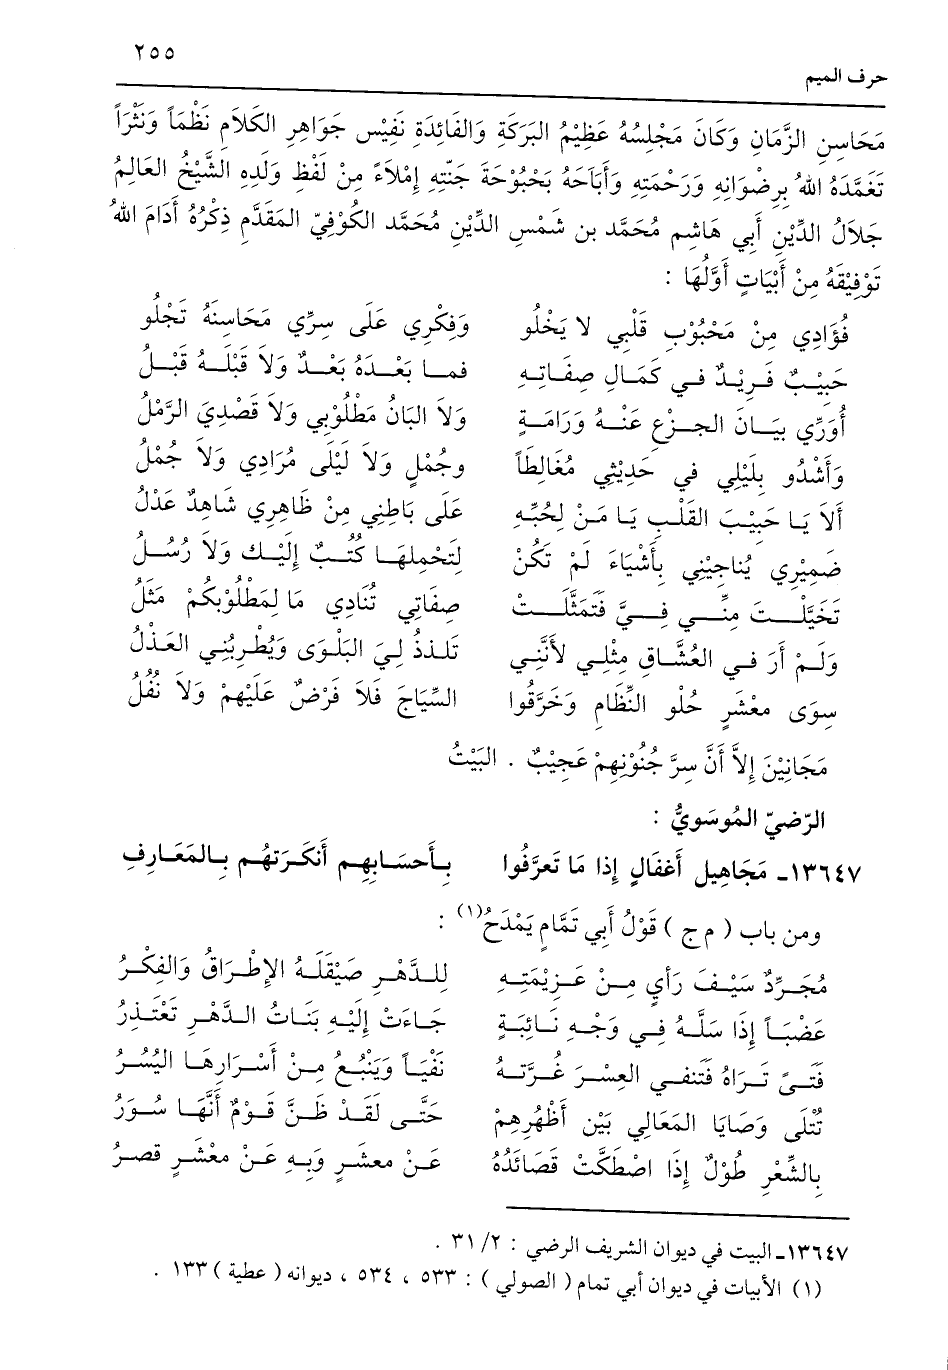 ٢٥٥
حرف الميم
مَحَاسِنِ الزَّمَانِ وَكَانَ مَجْلِسُهُ عَظِيْمُ البَرَكَةِ وَالفَائِدَةِ نَفِيْس جَوَاهِرِ الكَلاَمِ نَظْمَاً وَنَثْرَاً
تَغَمَّدَهُ اللهُ بِرِضْوَانِهِ وَرَحْمَتِهِ وَأَبَاحَهُ بَحْبُوْحَةَ جَنّتِهِ إِمْلاَءً مِنْ لَفْظِ وَلَدِهِ الشَّيْخُ العَالِمُ
جَلاَلُ الدِّيْنِ أَبِي هَاشِم مُحَمَّد بن شَمْسِ الدِّيْنِ مُحَمَّد الكُوْفِيّ المَقَدَّمِ ذِكْرُهُ أَدَامَ اللهُ
تَوْفِيْقَهُ مِنْ أَبْيَاتٍ أَوَّلُهَا :
فُؤَادِي مِنْ مَحْبُوْبِ قَلْبِي لا يَخْلُو وَفِكْرِي عَلَى سِرِّي مَحَاسِنَهُ تَجْلُو
حَبِيْبٌ فَرِيْدٌ في كَمَالِ صِفَاتِهِ فما بَعْدَهُ بَعْدٌ وَلاَ قَبْلَهُ قَبْلُ
أُوَرِّي بِبَانَ الجزْعِ عَنْهُ وَرَامَةٍ وَلاَ البَانُ مَطْلُوْبِي وَلاَ قَصْدِيَ الرَّمْلُ
وَأَشْدُو بِلَيْلِي في حَدِيْثِي مُغَالِطَاً وجُمْلٍ وَلاَ لَيْلَى مُرَادِي وَلاَ جُمْلُ
أَلاَ يَا حَبِيْبَ القَلْبِ يَا مَنْ لِحُبِّهِ عَلَى بَاطِنِي مِنْ ظَاهِرِي شَاهِدٌ عَدْلُ
ضَمِيْرِي يُناجِيْنِي بِأَشْيَاءَ لَمْ تَكُنْ لِتَحْمِلهَا كُتُبٌ إِلَيْكَ وَلاَ رُسُلُ
تَخَيَّلْتَ مِنِّي فِيَّ فَتَمَثَّلَتْ صِفَاتِي تُنَادِي مَا لِمَطْلُوْبِكُمْ مَثَلُ
وَلَمْ أَرَ في العُشَّاقِ مِثْلِي لأَنَّنِي تلذذُ لِيَ البَلْوَى وَيُطْرِبُنِي العَذْلُ
سِوَى معْشَرٍ حُلْو النِّظَامِ وَخَرَّقُوا السِّيَاجَ فَلاَ فَرْضٌ عَلَيْهِمْ وَلاَ نُفْلُ
مَجَانِيْنَ إِلاَّ أَنَّ سِرَّ جُنُوْنِهِمْ عَجِيْبٌ . البَيْتُ
الرّضيّ المُوْسَوِيُّ :
١٣٦٤٧- مَجَاهِيل أَغفَالٍ إِذا مَا تَعرَّفُوا بِأَحسَابِهِم أَنكَرَتهُم بِالمَعَارِفِ
ومن باب ( م ج ) قَوْلُ أَبِي تَمَّامٍ يَمْدَحُ(١) :
مُجَرِّدٌ سَيْفَ رَأي مِنْ عَزِيْمَتِهِ لِلدَّهْرِ صَيْقَلَهُ الإِطْرَاقُ وَالفِكْرُ
عَضْبَاً إِذَا سَلَّهُ فِي وَجْهِ نَائِبَةٍ جَاءَتْ إِلَيْهِ بَنَاتُ الدَّهْرِ تَعْتَذِرُ
فَتَىً تَرَاهُ فَتنفي العِسْرَ غُرَّتهُ نَفْيَاً وَيَنْبُعُ مِنْ أَسْرَارِهَا اليُسُرُ
تُتْلَى وَصَايَا المَعَالِي بَيْن أَظْهُرِهِمْ حَتَّى لَقَدْ ظَنَّ قَوْمٌ أَنَّهَا سُوَرُ
بِالشِّعْرِ طُوْلٌ إِذَا اصْطَكَّتْ قَصَائدُهُ عَنْ معشَرٍ وَبِهِ عَنْ معْشَرٍ قصرُ
١٣٦٤٧- البيت في ديوان الشريف الرضي : ٢/ ٣١ .
(١) الأبيات في ديوان أبي تمام ( الصولي ) : ٥٣٣ ، ٥٣٤ ، ديوانه ( عطية ) ١٣٣ .